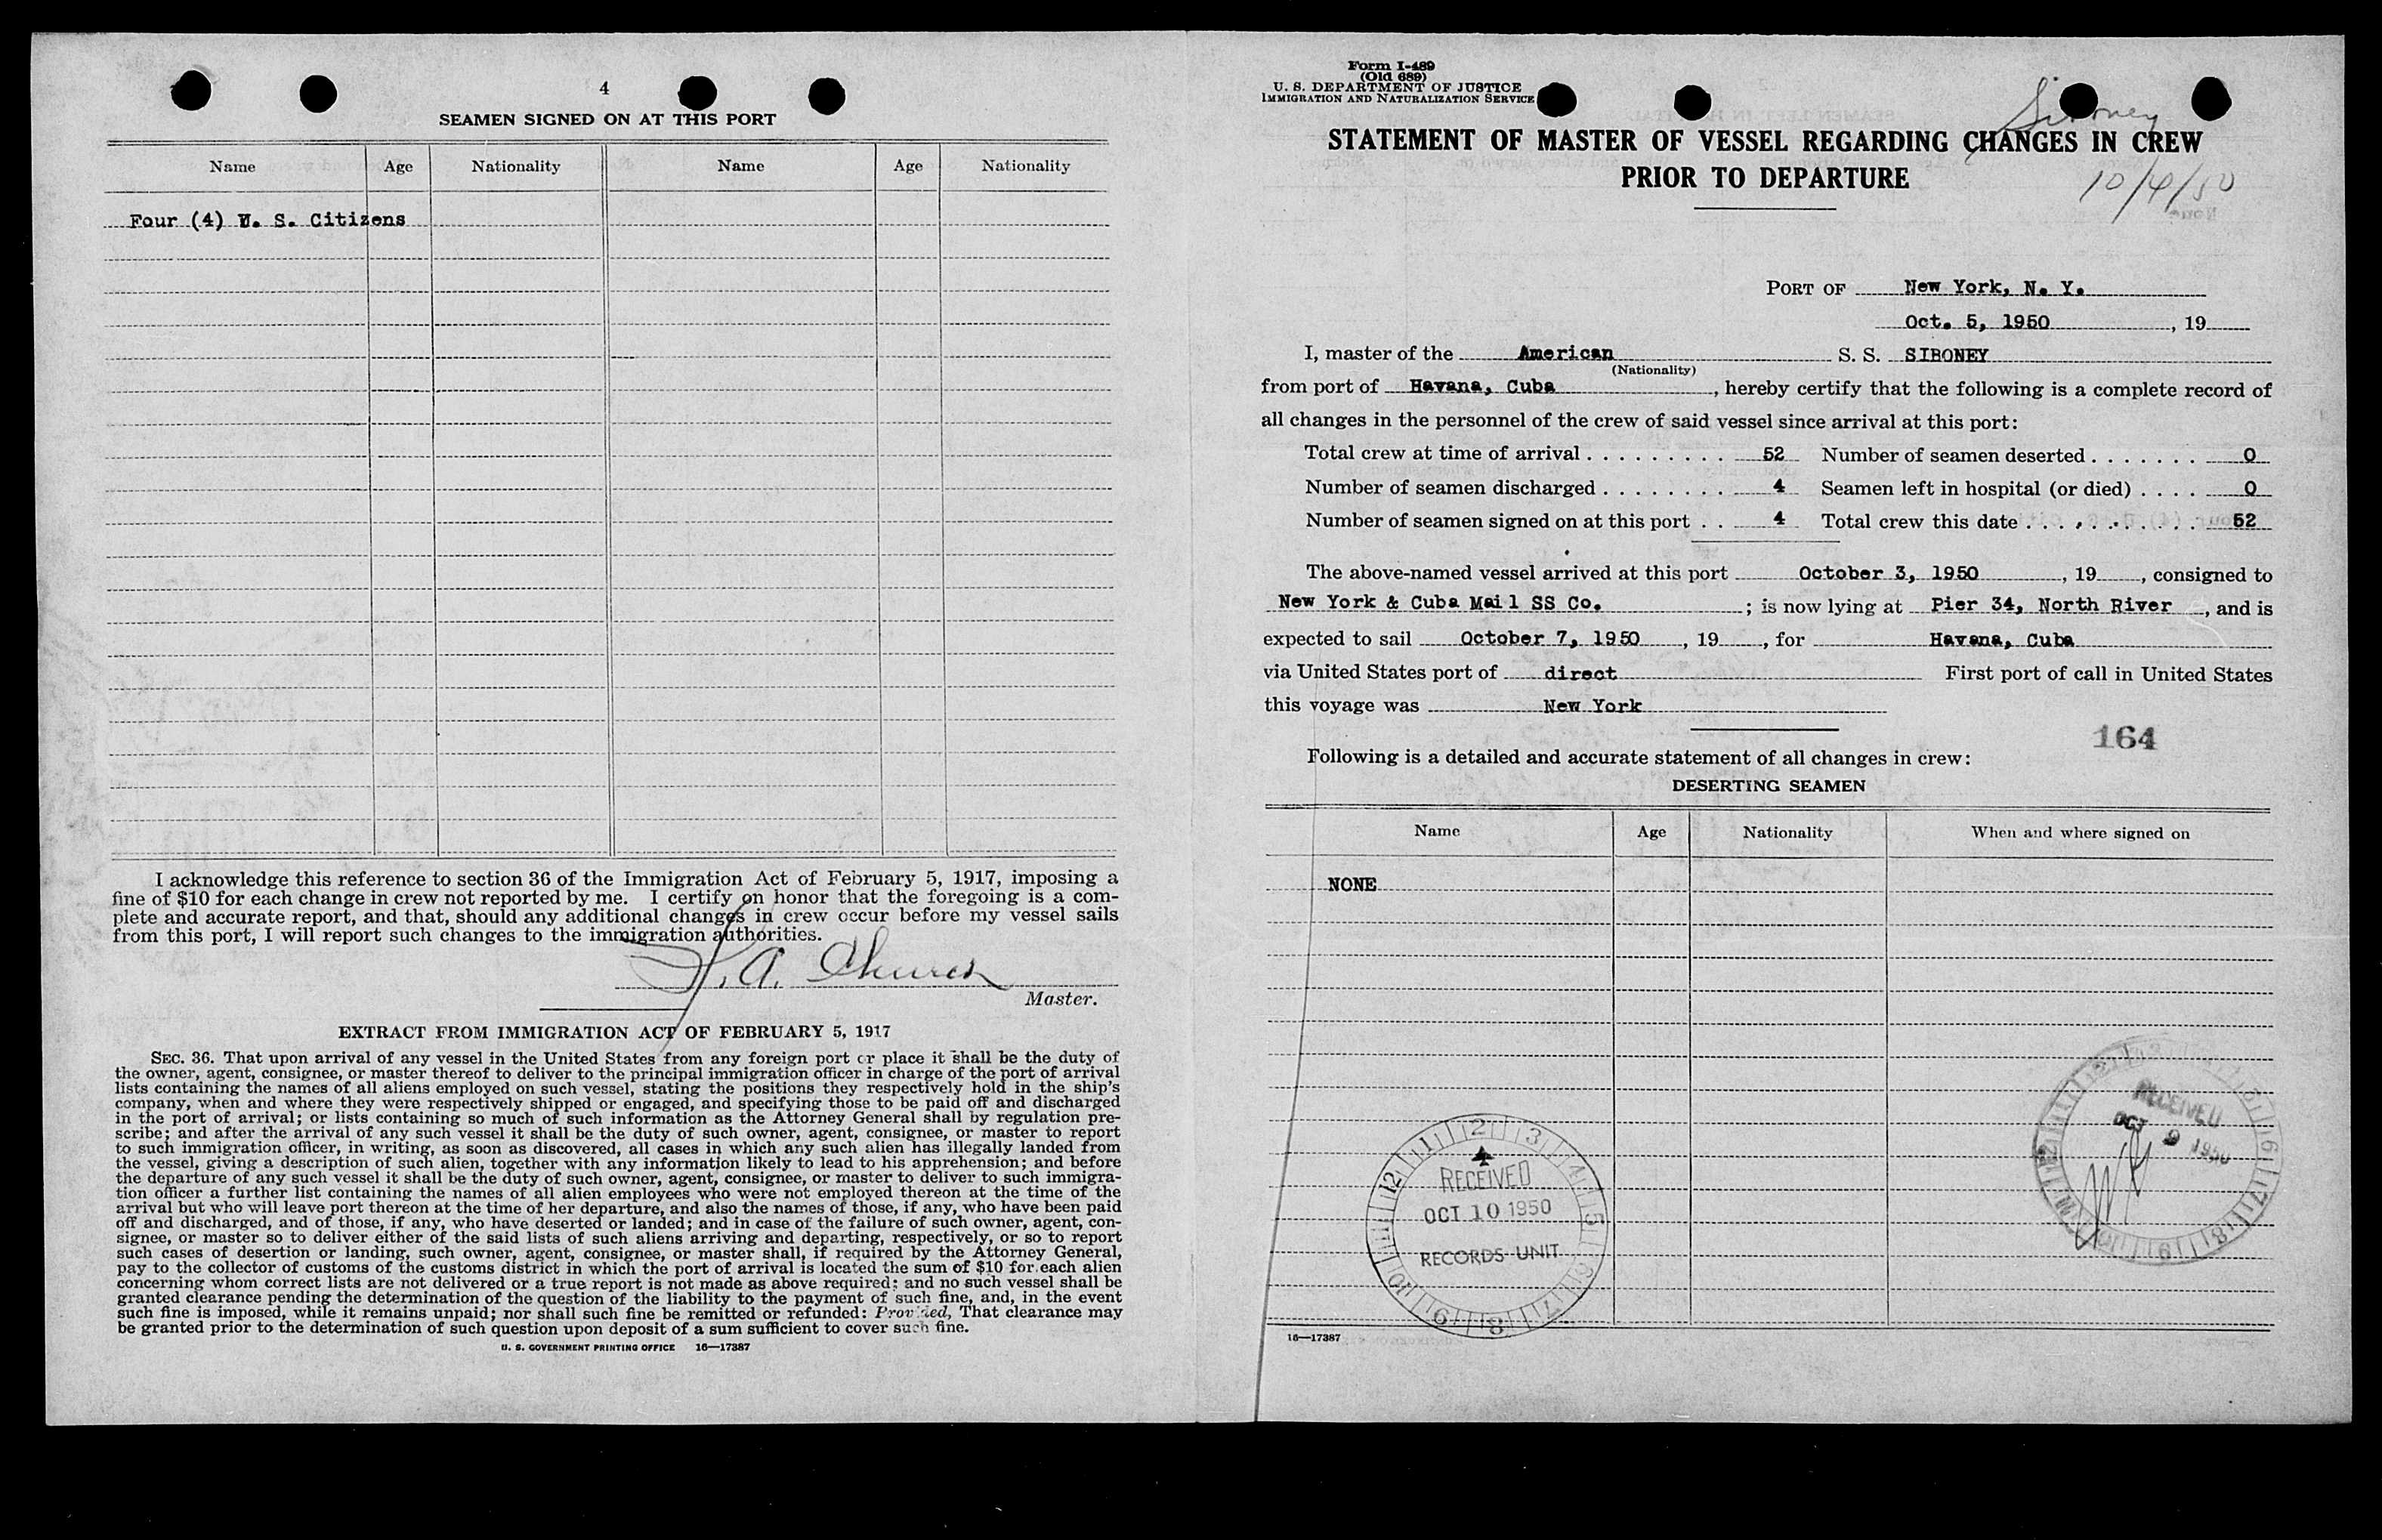 4
SEAMEN SIGNED ON AT THIS PORT
Name Age Nationality Name Age Nationality
Four (4) U. S. Citizens
I acknowledge this reference to section 36 of the Immigration Act of February 5, 1917, imposing a
fine of $10 for each change in crew not reported by me. I certify on honor that the foregoing is a com-
plete and accurate report, and that, should any additional changes in crew occur before my vessel sails
from this port, I will report such changes to the immigration authorities.
A. Church
Master.
EXTRACT FROM IMMIGRATION ACT OF FEBRUARY 5, 1917
SEC. 36. That upon arrival of any vessel in the United States from any foreign port or place it shall be the duty of
the owner, agent, consignee, or master thereof to deliver to the principal immigration officer in charge of the port of arrival
lists containing the names of all aliens employed on such vessel, stating the positions they respectively hold in the ship's
company, when and where they were respectively shipped or engaged, and specifying those to be paid off and discharged
in the port of arrival; or lists containing so much of such information as the Attorney General shall by regulation pre-
scribe; and after the arrival of any such vessel it shall be the duty of such owner, agent, consignee, or master to report
to such immigration officer, in writing, as soon as discovered, all cases in which any such alien has illegally landed from
the vessel, giving a description of such alien, together with any information likely to lead to his apprehension; and before
the departure of any such vessel it shall be the duty of such owner, agent, consignee, or master to deliver to such immigra-
tion officer a further list containing the names of all alien employees who were not employed thereon at the time of the
arrival but who will leave port thereon at the time of her departure, and also the names of those, if any, who have been paid
off and discharged, and of those, if any, who have deserted or landed; and in case of the failure of such owner, agent, con-
signee, or master so to deliver either of the said lists of such aliens arriving and departing, respectively, or so to report
such cases of desertion or landing, such owner, agent, consignee, or master shall, if required by the Attorney General,
pay to the collector of customs of the customs district in which the port of arrival is located the sum of $10 for each alien
concerning whom correct lists are not delivered or a true report is not made as above required; and no such vessel shall be
granted clearance pending the determination of the question of the liability to the payment of such fine, and, in the event
such fine is imposed, while it remains unpaid; nor shall such fine be remitted or refunded: Provided, That clearance may
be granted prior to the determination of such question upon deposit of a sum sufficient to cover such fine.
U. S. GOVERNMENT PRINTING OFFICE 16—17387
Form I-489
(Old 689)
U. S. DEPARTMENT OF JUSTICE
IMMIGRATION AND NATURALIZATION SERVICE
Siboney
STATEMENT OF MASTER OF VESSEL REGARDING CHANGES IN CREW
PRIOR TO DEPARTURE
10/4/50
PORT OF New York, N. Y.
Oct. 5, 1950, 19
I, master of the American S. S. SIBONEY
(Nationality)
from port of Havana, Cuba, hereby certify that the following is a complete record of
all changes in the personnel of the crew of said vessel since arrival at this port:
Total crew at time of arrival . . . . . . . . . 52 Number of seamen deserted . . . . . . . 0
Number of seamen discharged . . . . . . . . 4 Seamen left in hospital (or died) . . . . 0
Number of seamen signed on at this port . . 4 Total crew this date . . . . . . . . . . 52
The above-named vessel arrived at this port October 3, 1950, 19, consigned to
New York & Cuba Mail SS Co.; is now lying at Pier 34, North River, and is
expected to sail October 7, 1950, 19, for Havana, Cuba
via United States port of direct First port of call in United States
this voyage was New York
164
Following is a detailed and accurate statement of all changes in crew:
DESERTING SEAMEN
Name Age Nationality When and where signed on
NONE
RECEIVED
OCT 9 1950
RECEIVED
OCT 10 1950
RECORDS UNIT
16—17387